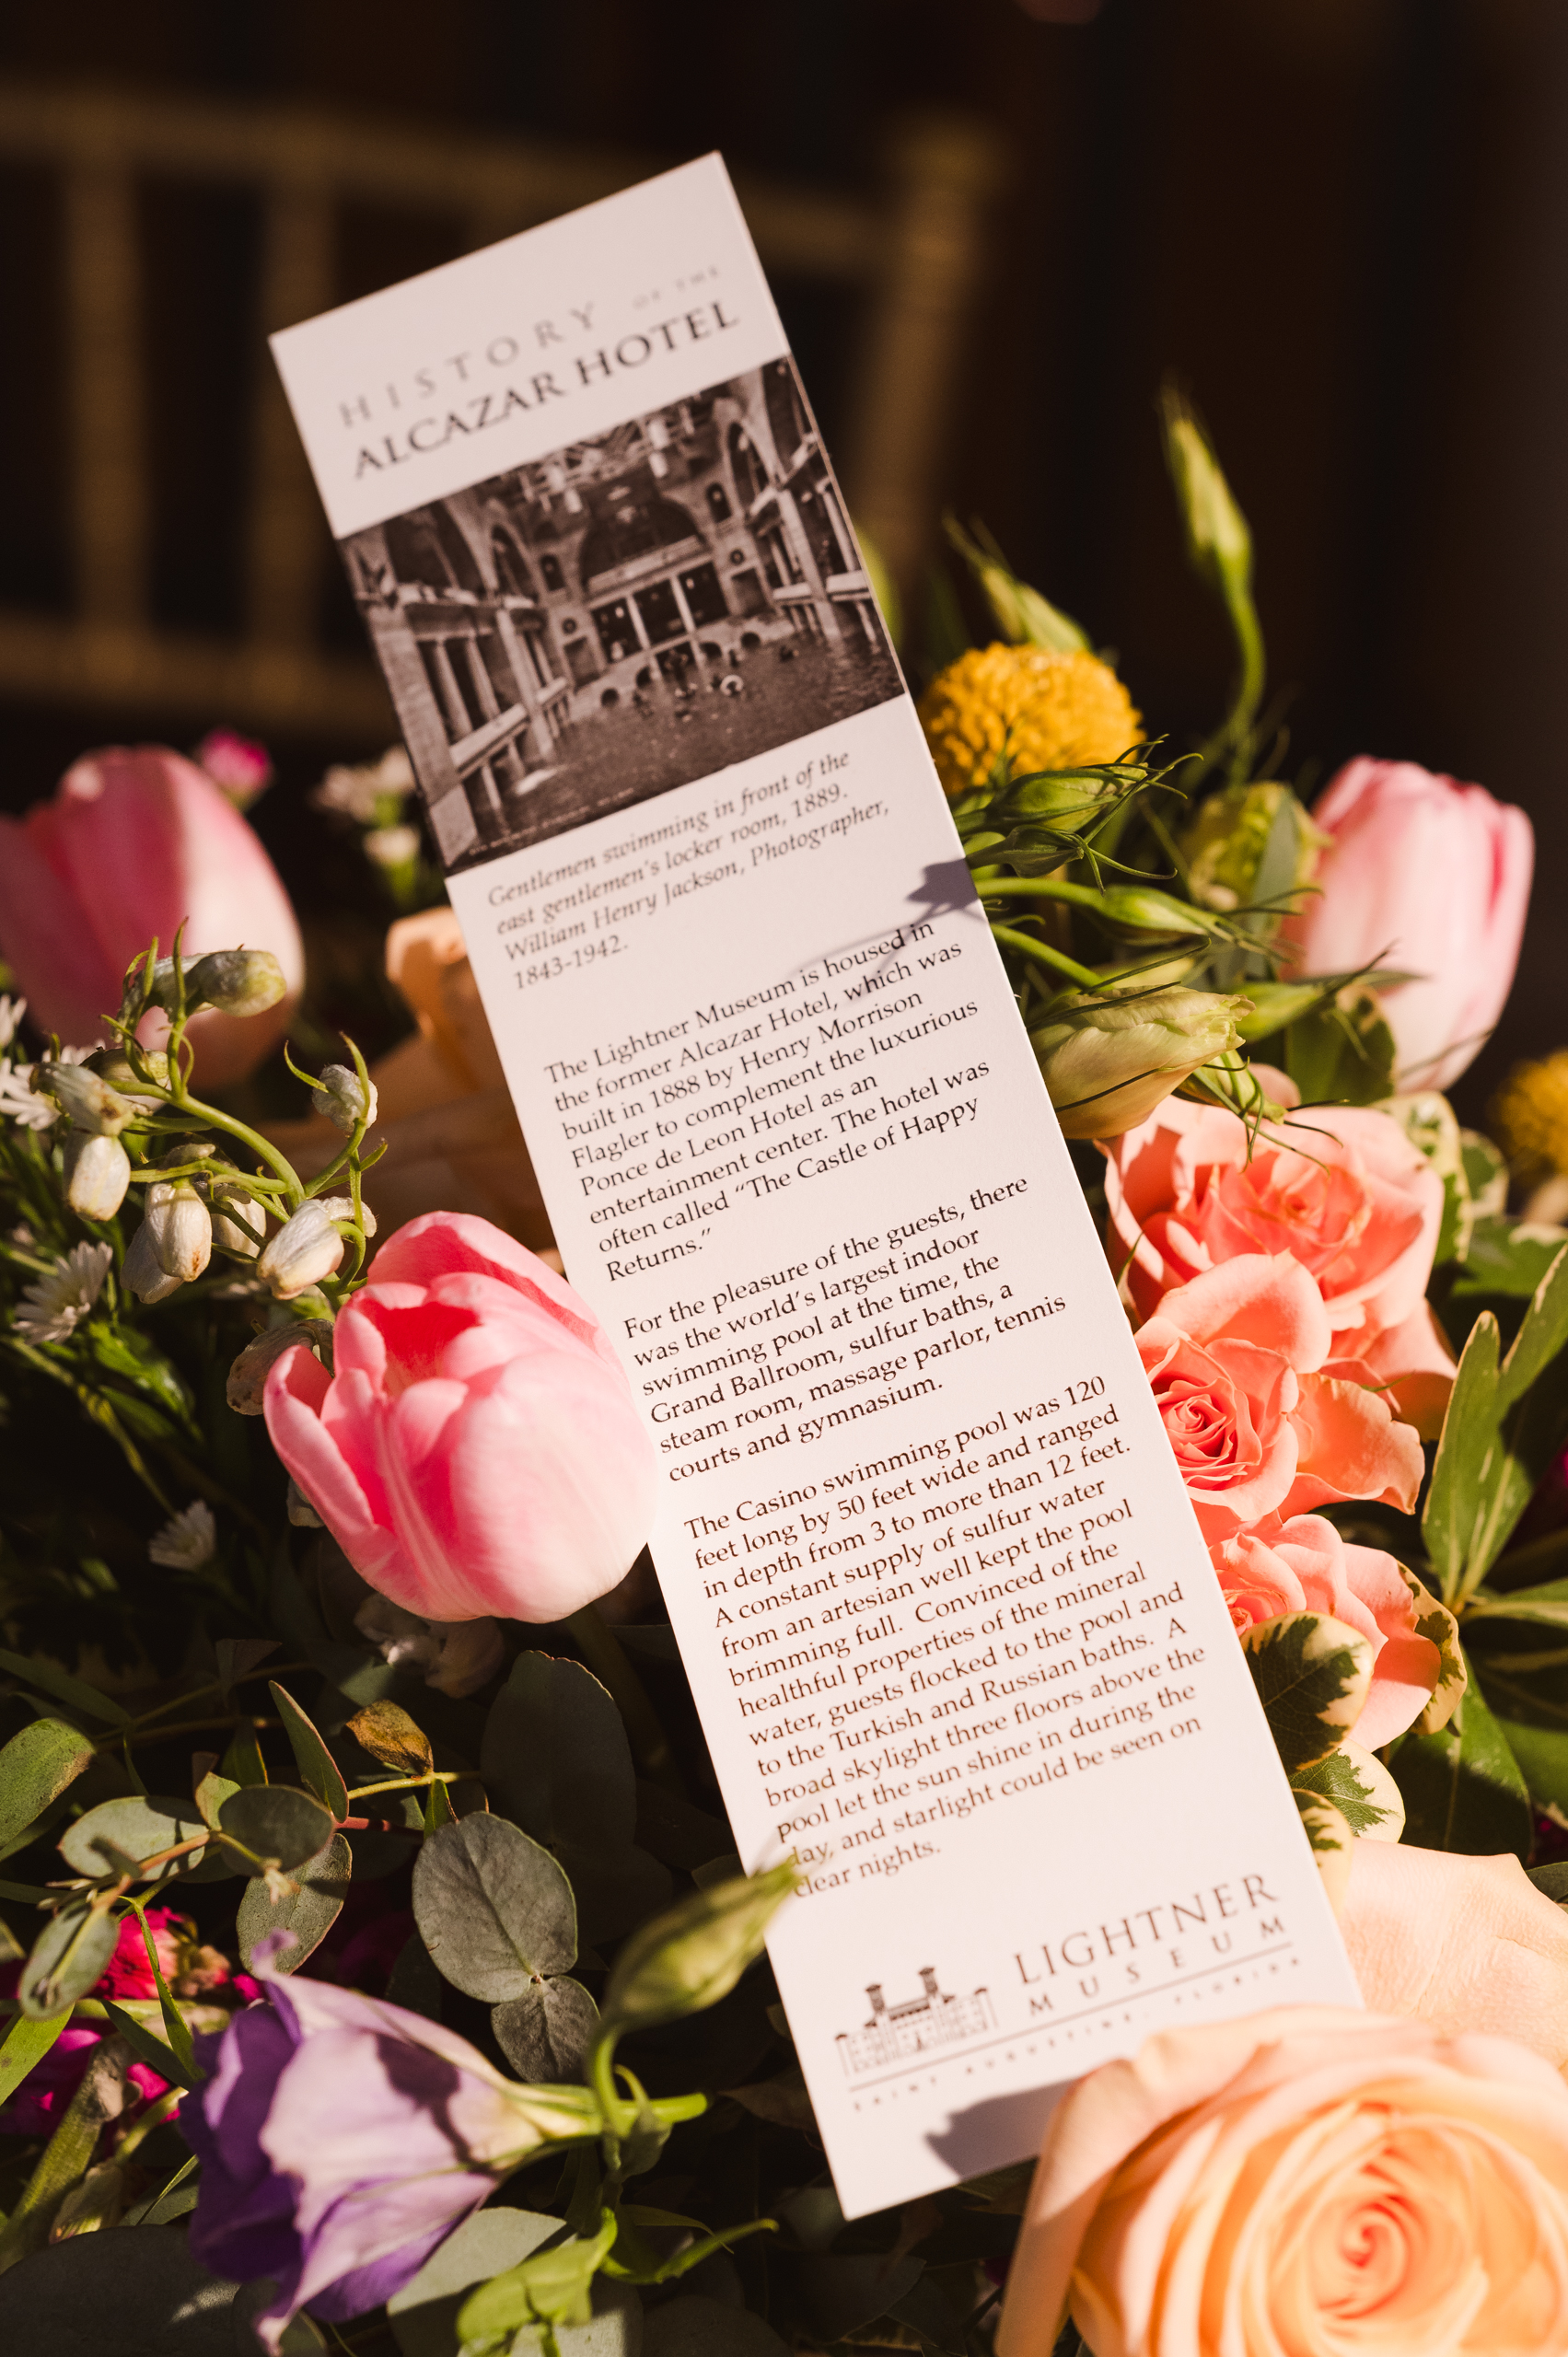 HISTORY OF THE
ALCAZAR HOTEL
Gentlemen swimming in front of the
east gentlemen's locker room, 1889.
William Henry Jackson, Photographer,
1843-1942.
The Lightner Museum is housed in
the former Alcazar Hotel, which was
built in 1888 by Henry Morrison
Flagler to complement the luxurious
Ponce de Leon Hotel as an
entertainment center. The hotel was
often called "The Castle of Happy
Returns."
For the pleasure of the guests, there
was the world's largest indoor
swimming pool at the time, the
Grand Ballroom, sulfur baths, a
steam room, massage parlor, tennis
courts and gymnasium.
The Casino swimming pool was 120
feet long by 50 feet wide and ranged
in depth from 3 to more than 12 feet.
A constant supply of sulfur water
from an artesian well kept the pool
brimming full. Convinced of the
healthful properties of the mineral
water, guests flocked to the pool and
to the Turkish and Russian baths. A
broad skylight three floors above the
pool let the sun shine in during the
day, and starlight could be seen on
clear nights.
LIGHTNER
MUSEUM
SAINT AUGUSTINE, FLORIDA